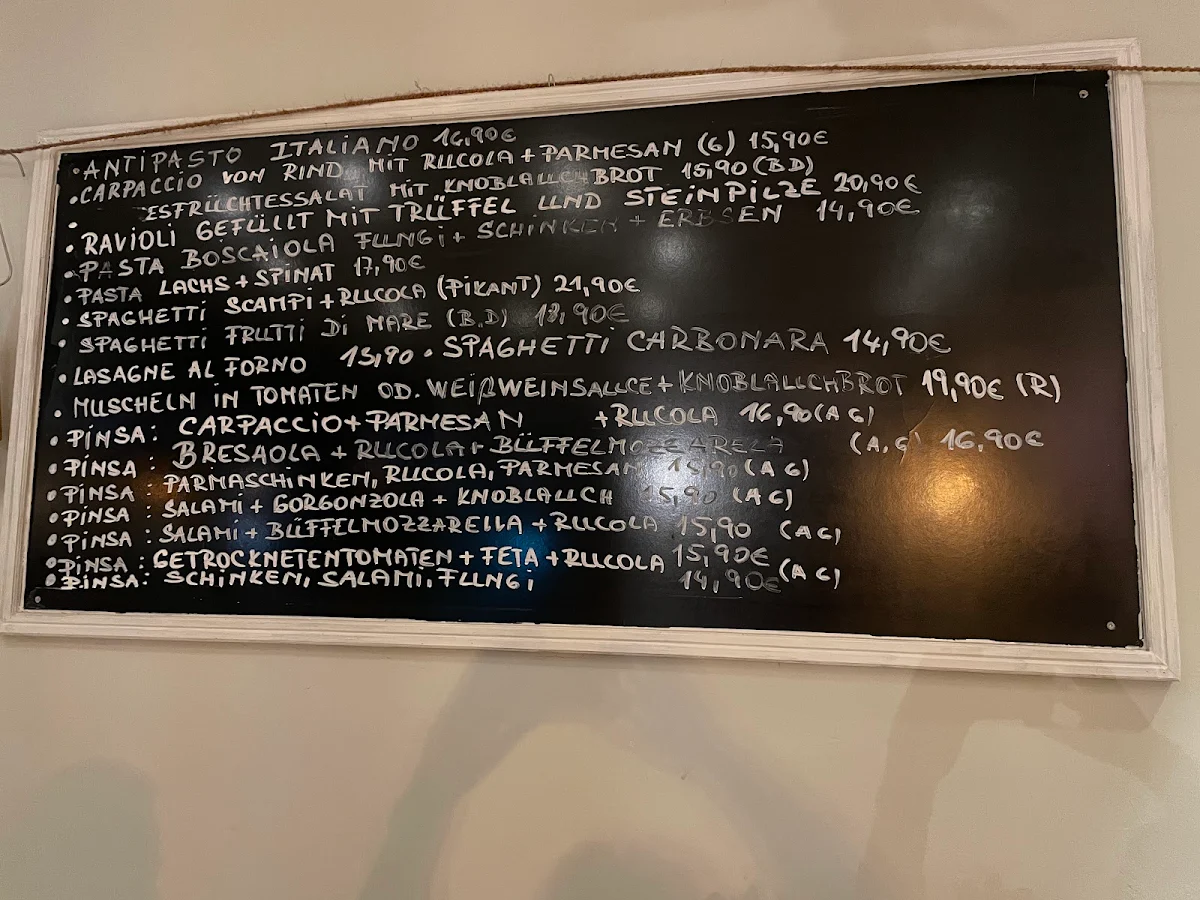 • ANTIPASTO ITALIANO 16,90€
• CARPACCIO VON RIND MIT RUCOLA + PARMESAN (G) 15,90€
• ESFRÜCHTESSALAT MIT KNOBLAUCHBROT 15,90 (BD)
• RAVIOLI GEFÜLLT MIT TRÜFFEL UND STEINPILZE 20,90€
• PASTA BOSCAIOLA FUNGI + SCHINKEN + ERBSEN 14,90€
• PASTA LACHS + SPINAT 17,90€
• SPAGHETTI SCAMPI + RUCOLA (PIKANT) 21,90€
• SPAGHETTI FRUTTI DI MARE (B,D) 18,90€
• LASAGNE AL FORNO 13,90 • SPAGHETTI CARBONARA 14,90€
• MUSCHELN IN TOMATEN OD. WEIßWEINSAUCE + KNOBLAUCHBROT 19,90€ (R)
• PINSA: CARPACCIO + PARMESAN + RUCOLA 16,90 (A G)
• PINSA: BRESAOLA + RUCOLA + BÜFFELMOZZARELA (A, G) 16,90€
• PINSA: PARMASCHINKEN, RUCOLA, PARMESAN 15,90 (A G)
• PINSA: SALAMI + GORGONZOLA + KNOBLAUCH 15,90 (A G)
• PINSA: SALAMI + BÜFFELMOZZARELLA + RUCOLA 15,90 (A G)
• PINSA: GETROCKNETENTOMATEN + FETA + RUCOLA 15,90€ (A G)
• PINSA: SCHINKEN, SALAMI, FUNGI 14,90€